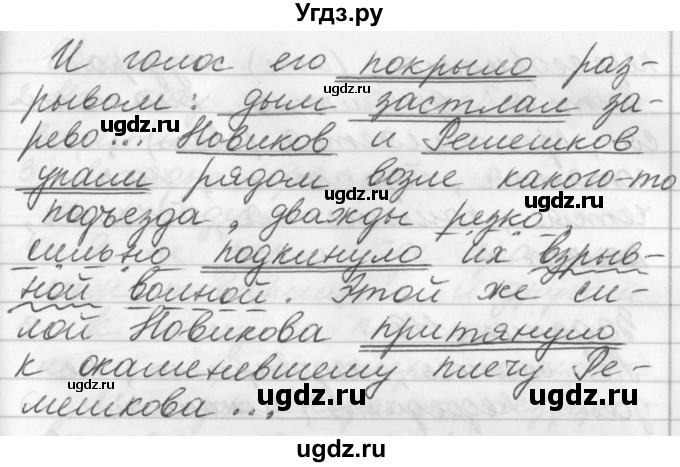 Угдз.ру
И голос его покрыло раз-
рывом: дым застлал за-
рево... Новиков и Ремешков
упали рядом возле какого-то
подъезда, дважды резко,
сильно подкинуло их взрыв-
ной волной. Этой же си-
лой Новикова притянуло
к окаменевшему плечу Ре-
мешкова...
ugdz.ru
ugdz.ru
ugdz.ru
ugdz.ru
ugdz.ru
ugdz.ru
ugdz.ru
ugdz.ru
ugdz.ru
ugdz.ru
ugdz.ru